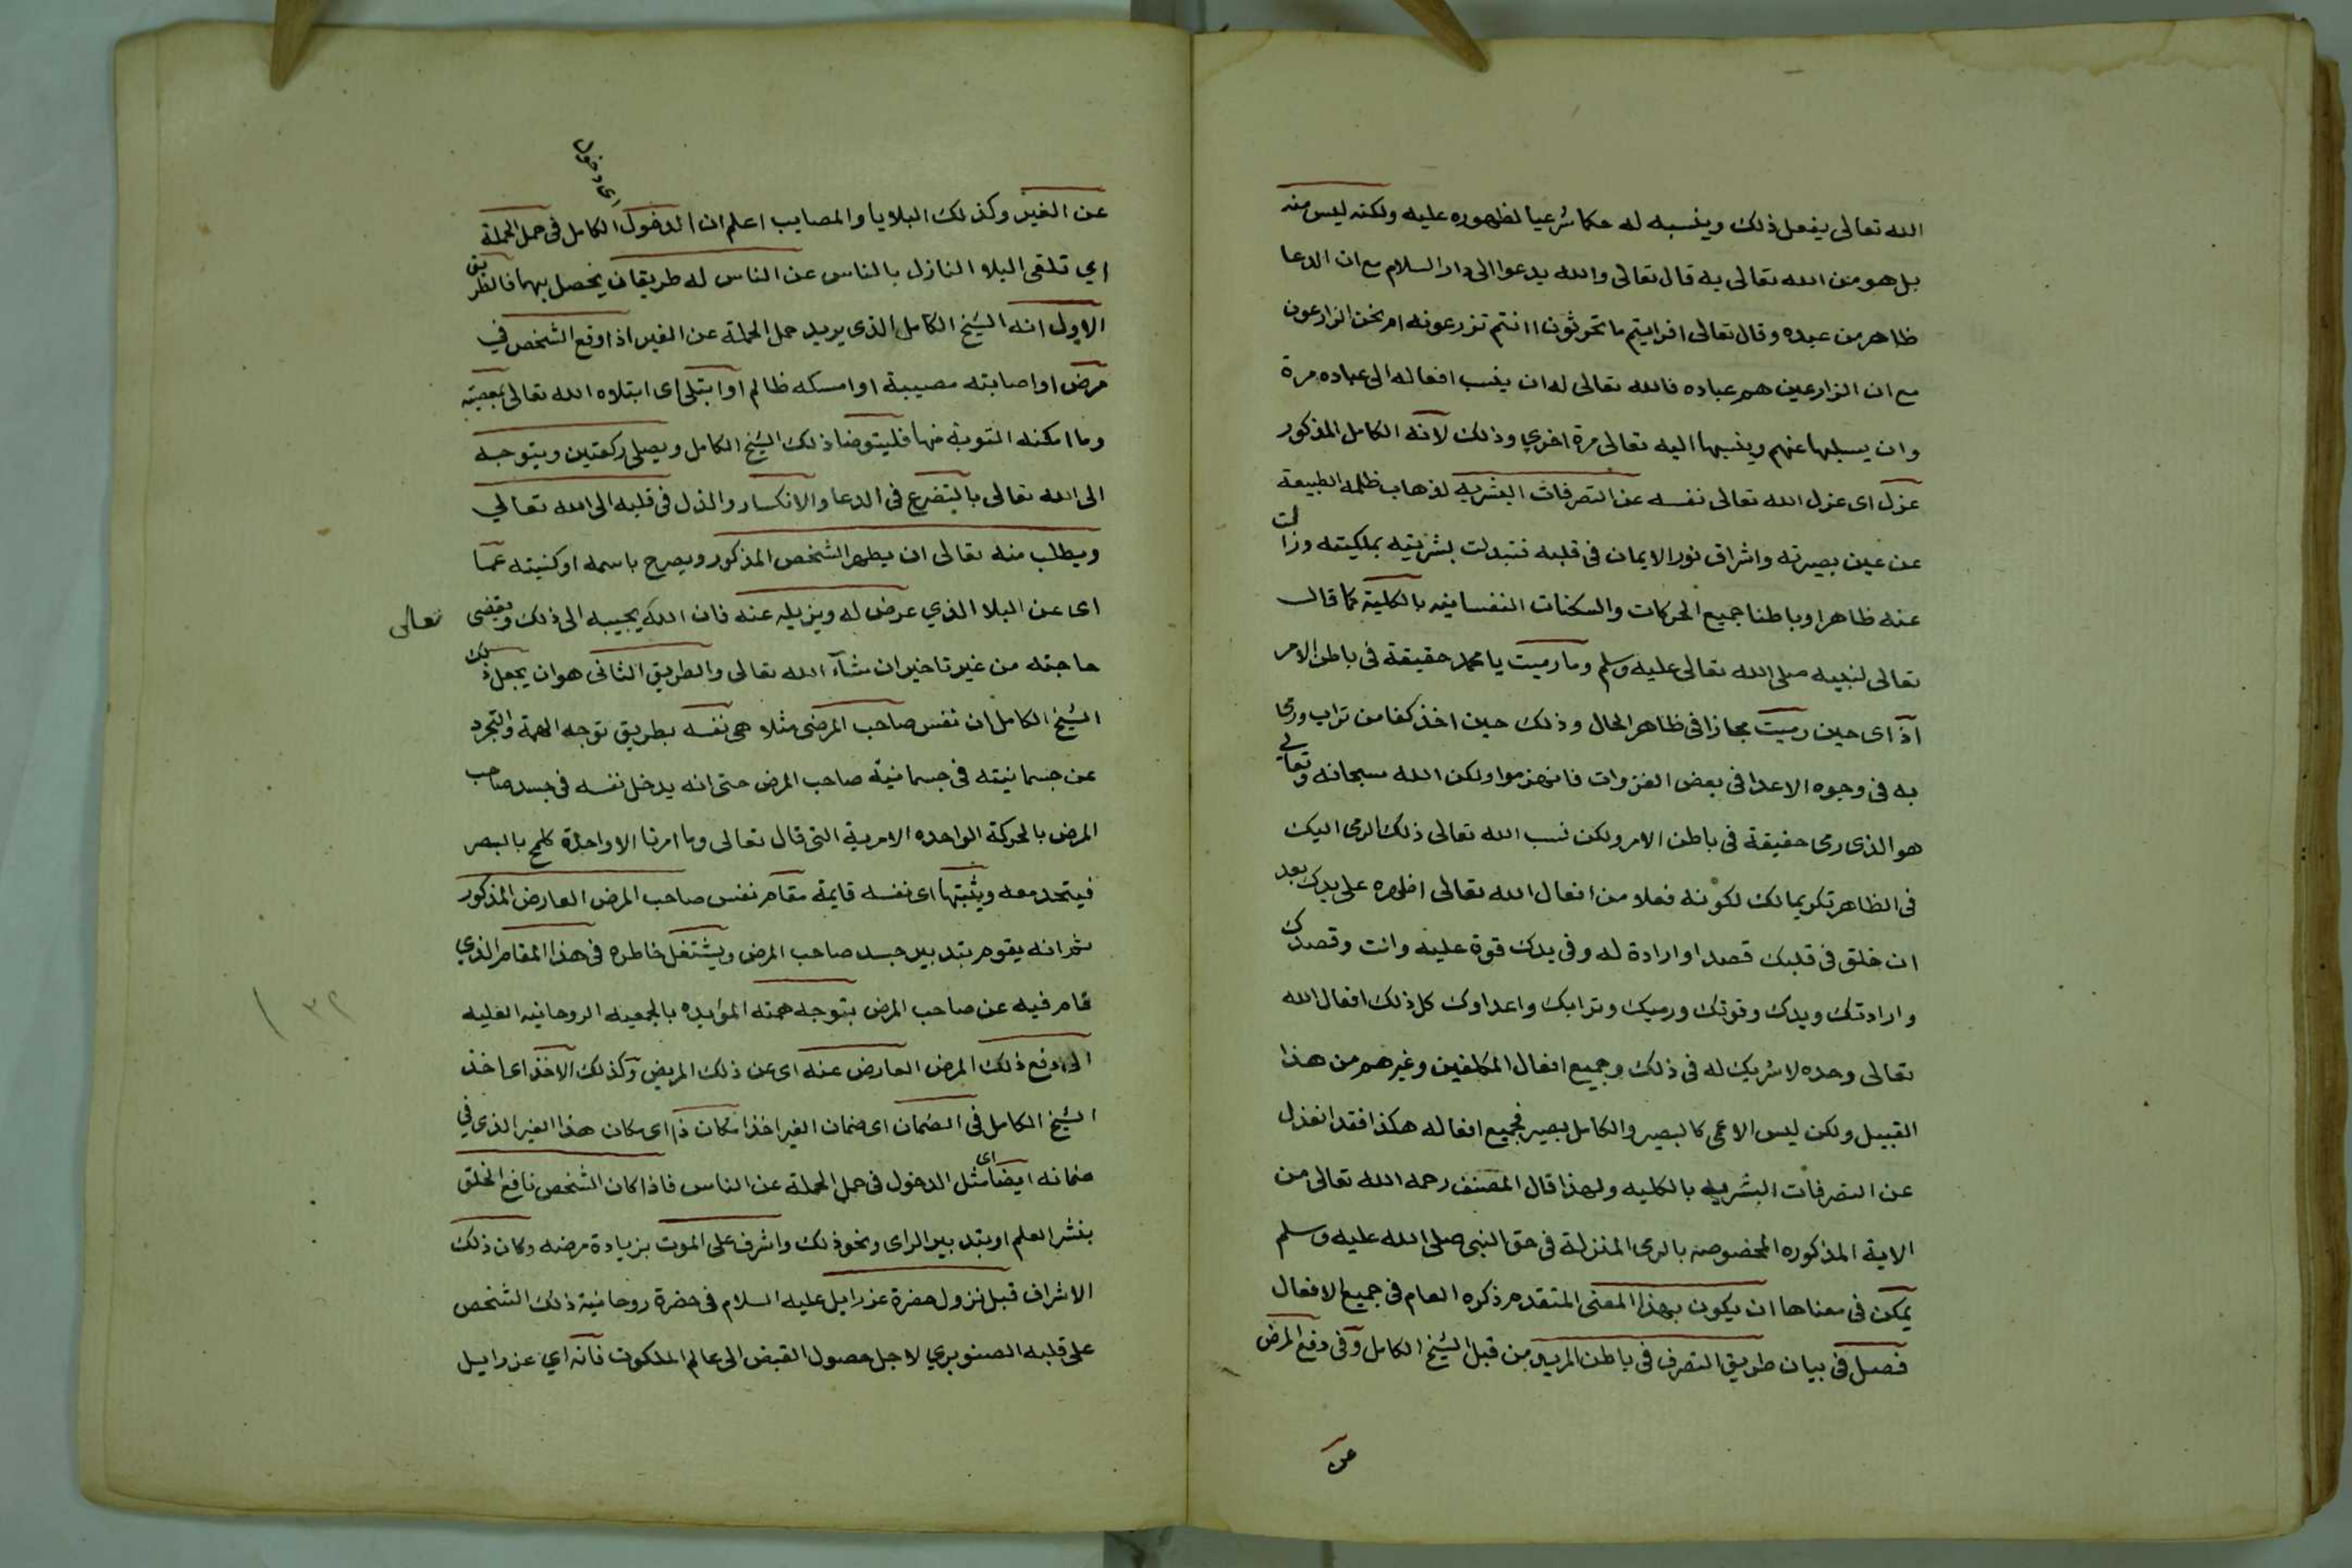 الله تعالى يفعل ذلك وينسبه له حكما شرعيا لظهوره عليه ولكنه ليس منه
بل هو من الله تعالى به قال تعالى والله يدعوا الى دار السلام مع ان الدعا
ظاهر من عبده وقال تعالى افرايتم ما تحرثون اانتم تزرعونه ام نحن الزارعون
مع ان الزارعين هم عباده فالله تعالى له ان ينسب افعاله الى عباده مرة
وان يسلبها عنهم وينسبها اليه تعالى مرة اخري وذلك لانه الكامل المذكور
عزل اى عزل الله تعالى نفسه عن التصرفات البشريه لذهاب ظلمه الطبيعة
عن عين بصيرته واشراق نور الايمان فى قلبه فتبدلت بشريته بملكيته وزالت
عنه ظاهرا وباطنا جميع الحركات والسكنات النفسانيه بالكلية كما قال
تعالى لنبيه صلى الله تعالى عليه وسلم وما رميت يا محمد حقيقة فى باطن الامر
اذ اى حين رميت مجازا فى ظاهر الحال وذلك حين اخذ كفا من تراب ورمى
به فى وجوه الاعدا فى بعض الغزوات فانهزموا ولكن الله سبحانه وتعالى
هو الذى رمى حقيقة فى باطن الامر ولكن نسب الله تعالى ذلك الرمى اليك
فى الظاهر تكريما لك لكونه فعلا من افعال الله تعالى اظهره على يدك بعد
ان خلق فى قلبك قصدا وارادة له وفى يدك قوة عليه وانت وقصدك
وارادتك ويدك وقوتك ورميك وترابك واعداوك كل ذلك افعال الله
تعالى وحده لا شريك له فى ذلك وجميع افعال المكلفين وغيرهم من هذا
القبيل ولكن ليس الاعمى كالبصير والكامل بصير فجميع افعاله هكذا فقد انعزل
عن التصرفات البشريه بالكليه ولهذا قال المصنف رحمه الله تعالى من
الاية المذكوره المخصوصه بالرمى المنزلة فى حق النبى صلى الله عليه وسلم
يمكن فى معناها ان يكون بهذا المعنى المتقدم ذكره العام فى جميع الافعال
فصل فى بيان طريق التصرف فى باطن المريد من قبل الشيخ الكامل وفى دفع المرض
عن
عن الغير وكذلك البلايا والمصايب اعلم ان الدخول اى دخول الكامل فى حمل الحملة
اي تلقى البلا النازل بالناس عن الناس له طريقان يحصل بهما فالطريق
الاول انه الشيخ الكامل الذى يريد حمل الحملة عن الغير اذا وقع الشخص في
مرض او اصابته مصيبة او امسكه ظالم او ابتلى اى ابتلاه الله تعالى بمعصيته
وما امكنه التوبة منها فليتوضا ذلك الشيخ الكامل ويصلى ركعتين ويتوجه
الى الله تعالى بالتضرع فى الدعا والانكسار والذل فى قلبه الى الله تعالي
ويطلب منه تعالى ان يطهر الشخص المذكور ويصرح باسمه او كنيته عما
اى عن البلا الذي عرض له ويزيله عنه فان الله تعالى يجيبه الى ذلك ويقضى
حاجته من غير تاخير ان شآء الله تعالى والطريق الثانى هو ان يجعل ذلك
الشيخ الكامل ان نفس صاحب المرض مثلا هى نفسه بطريق توجه الهمة والتجرد
عن جسمانيته فى جسمانية صاحب المرض حتى انه يدخل نفسه فى جسد صاحب
المرض بالحركة الواحده الامرية التى قال تعالى وما امرنا الا واحدة كلمح بالبصر
فيتحد معه ويثبتها اى نفسه قايمة مقام نفس صاحب المرض العارض المذكور
ثم انه يقوم بتدبير جسد صاحب المرض ويشتغل خاطره فى هذا المقام الذي
قام فيه عن صاحب المرض بتوجه همته المؤيده بالجمعيه الروحانيه القلبيه
الى دفع ذلك المرض العارض عنه اى عن ذلك المريض وكذلك الاخذ اى اخذ
الشيخ الكامل فى الضمان اى ضمان الغير اخذا مكان ذا اى مكان هذا الغير الذى في
ضمانه ايضا اى مثل الدخول فى حمل الحملة عن الناس فاذا كان الشخص نافع الخلق
بنشر العلم او بتدبير الراى ونحو ذلك واشرف على الموت بزيادة مرضه وكان ذلك
الاشراف قبل نزول حضرة عزرايل عليه السلام فى حضرة روحانية ذلك الشخص
على قلبه الصنوبري لاجل حصول القبض الى عالم الملكوت فانه اي عزرايل
٣٢